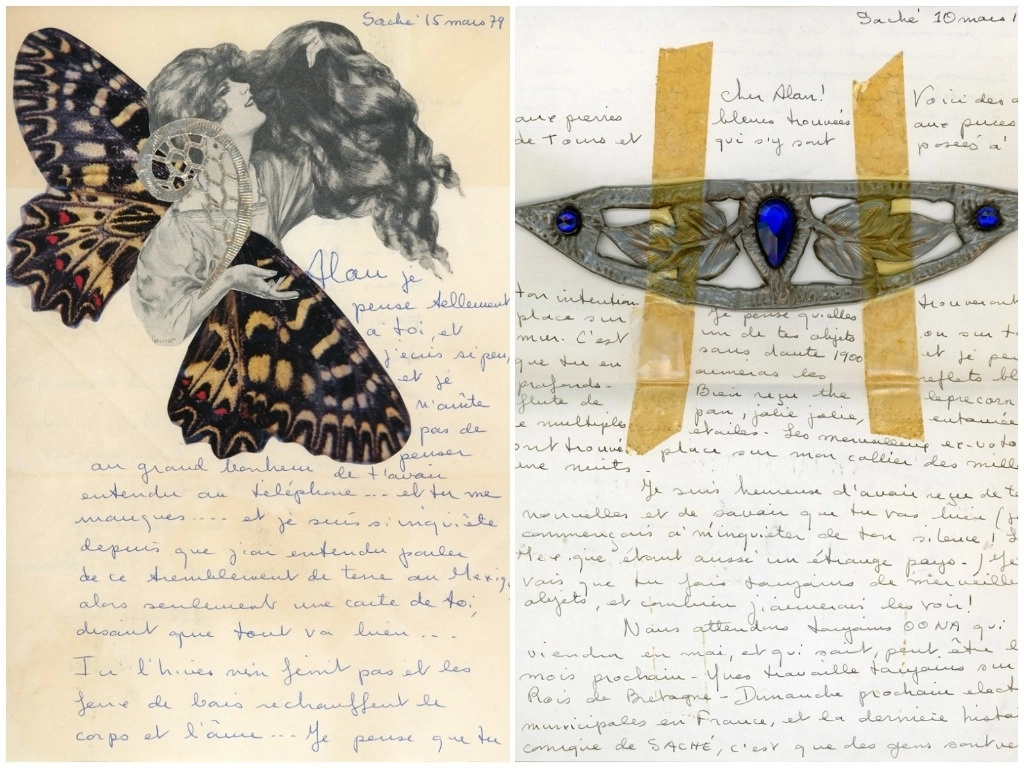 Saché 15 mars 79
Alan je
pense tellement
à toi, et
j'écris si peu,
et je
n'arrête
pas de
penser
au grand bonheur de t'avoir
entendu au téléphone... et tu me
manques.... et je suis si inquiète
depuis que j'ai entendu parler
de ce tremblement de terre au Mexiq
alors seulement une carte de toi,
disant que tout va bien....
Ici l'hiver n'en finit pas et les
feux de bois rechauffent le
corps et l'âme... Je pense que tu
Saché 10 mars 1
Cher Alan! Voici des
aux pierres bleues trouvées aux puces
de Tours et qui s'y sont posées à
ton intention. Je pense qu'elles trouveront
place sur un de tes objets ou sur t
mur. C'est sans doute 1900 et je pen
que tu en aimeras les reflets bl
profonds. Bien reçu the leprecorn
flute de pan, jolie jolie, entourée
e multiples étoiles. Les merveilleux ex-voto
ont trouvé place sur mon collier des mille
une nuits.
Je suis heureuse d'avoir reçu de te
nouvelles et de savoir que tu vas bien (je
commençais à m'inquiéter de ton silence! L
Mexique étant aussi un étrange pays.) Je
vois que tu fais toujours de merveille
objets, et combien j'aimerais les voir!
Nous attendons toujours OONA qui
viendra en mai, et qui sait, peut être l
mois prochain - Yves travaille toujours sur
Rois de Bretagne - Dimanche prochain elect
municipales en France, et la derniere histoi
comique de SACHÉ, c'est que des gens sont ve